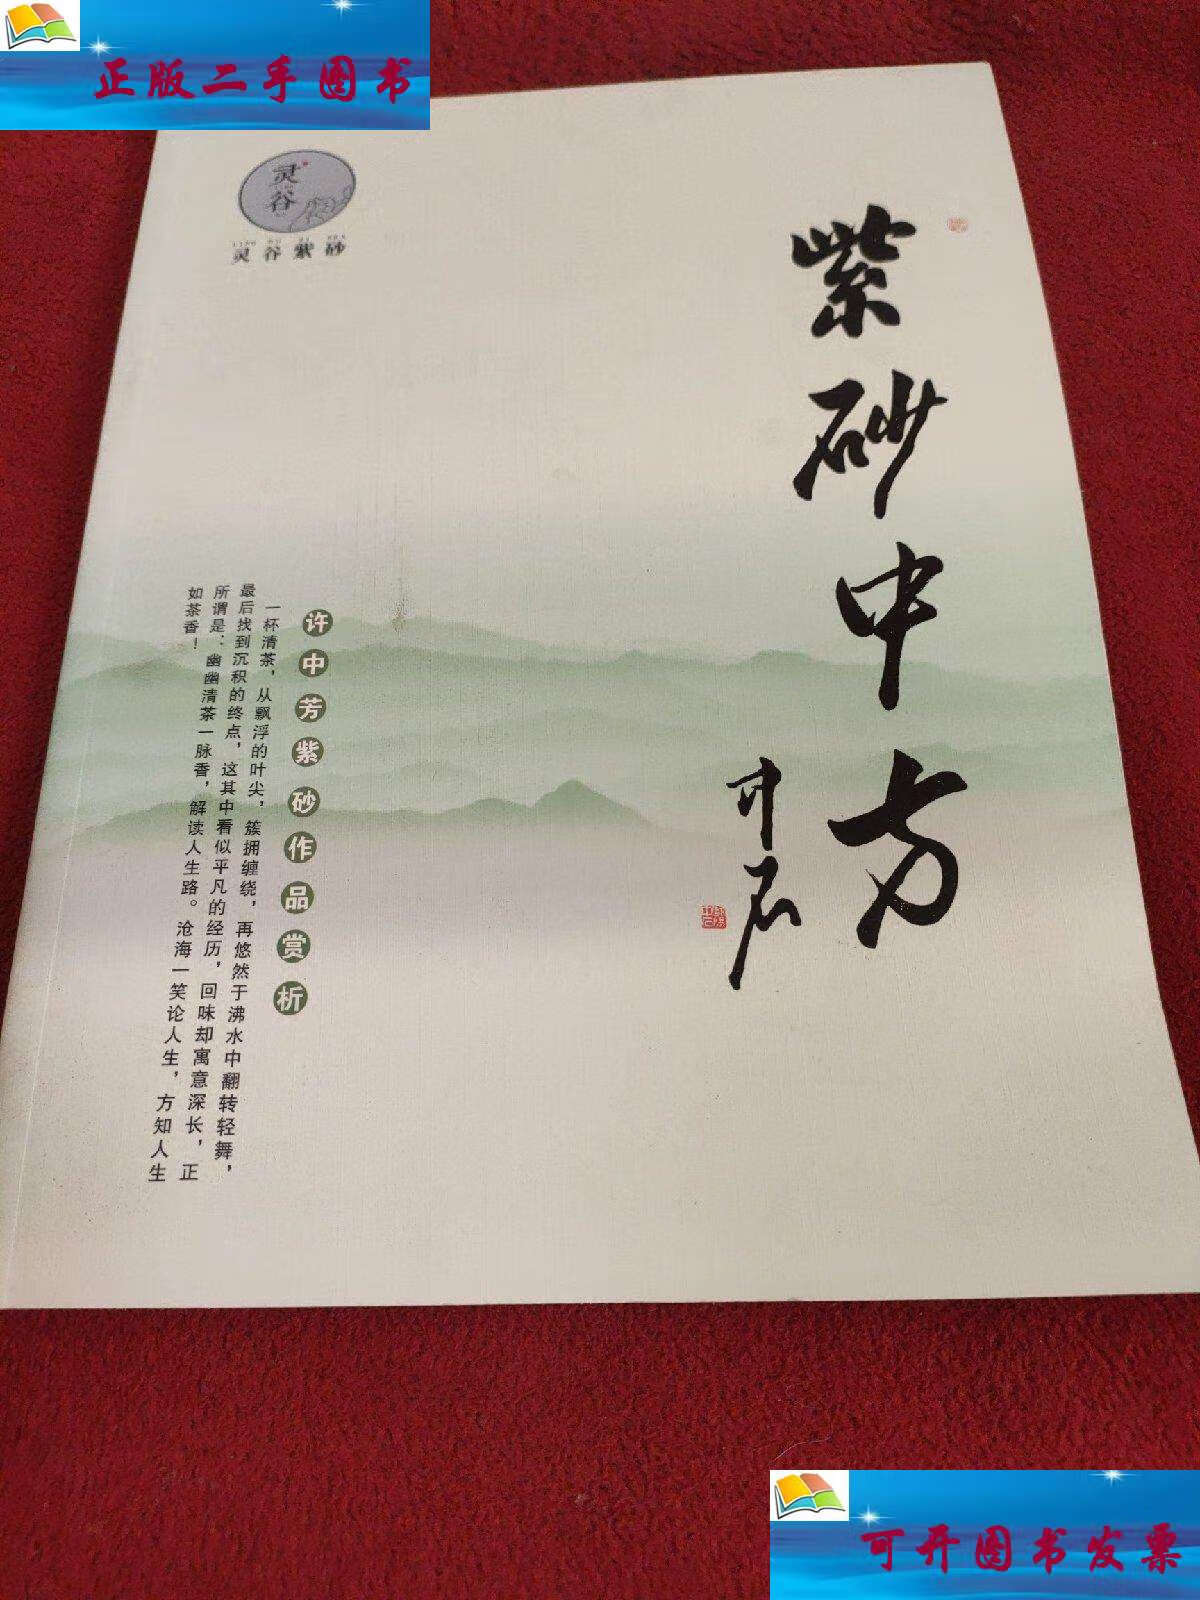 正版二手图书
灵谷
灵谷紫砂
紫砂中方
许中芳紫砂作品赏析
一杯清茶，从飘浮的叶尖，簇拥缠绕，再悠然于沸水中翻转轻舞，
最后找到沉积的终点，这其中看似平凡的经历，回味却寓意深长，正
所谓是：幽幽清茶一脉香，解读人生路。沧海一笑论人生，方知人生
如茶香！
可开图书发票